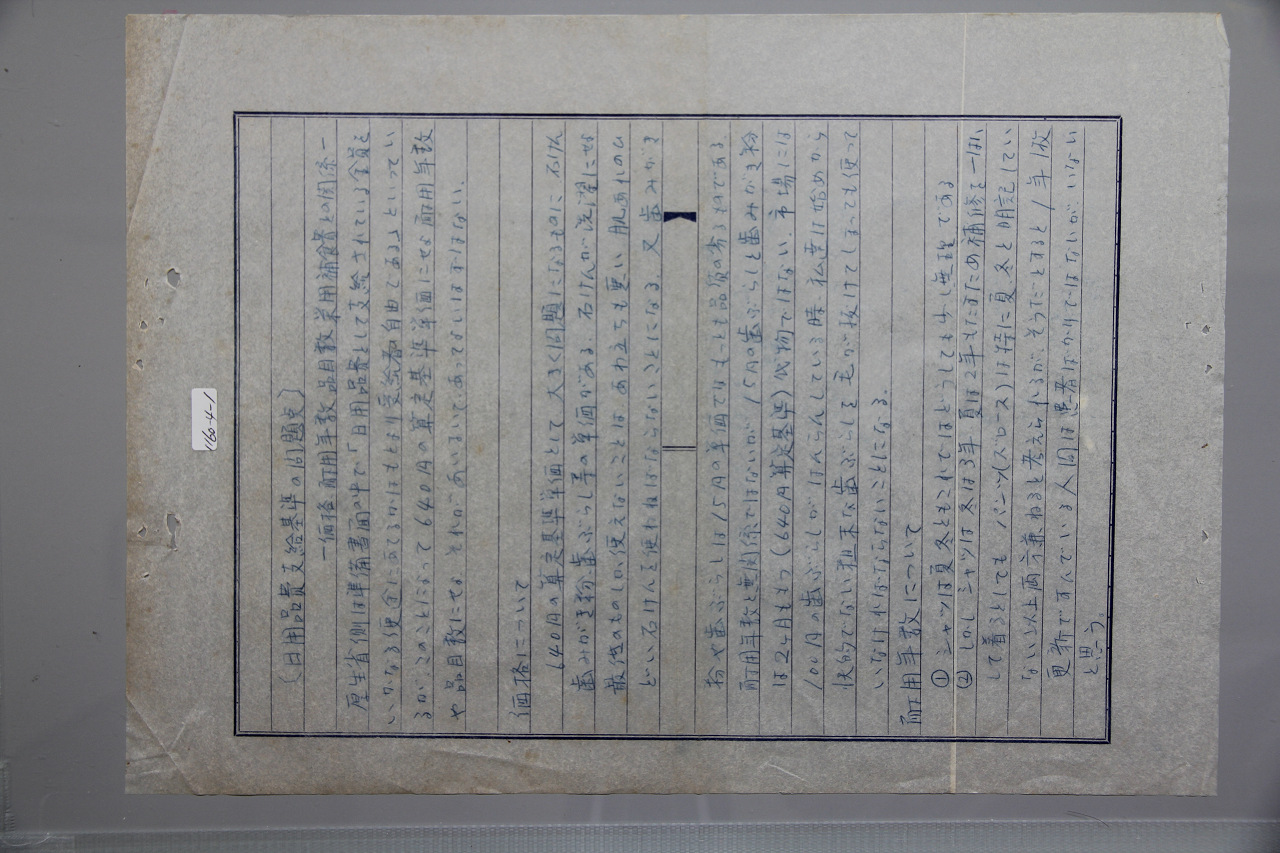 1160-4-1
(日用品費支給基準の問題点)
―価格 耐用年数 品目数 栄用補食費との関係―
厚生省側は準備書面の中で「日用品費として支給されている金員を
いかなる使途にあてるかはもとより受給者の自由である」といってい
るが、このことによって640円の算定基準単価にせよ耐用年数
や品目数にせよ、それがあいまいであってよいはずはない。
価格について
640円の算定基準単価として大きく問題になるものに石けん
歯みがき粉歯ぶらし等の単価がある。石けんが洗濯にせよ
最低のものしか使えないことはあわ立ちも悪い肌あれのひ
どい石けんを使わねばならないことになる。又歯みがき
粉や歯ぶらしは15円の単価ではもっとも品質の劣るものである
耐用年数と無関係ではないが15円の歯ぶらしと歯みがき粉
は2ヶ月ももつ(640円算定基準)代物ではない。市場には
100円の歯ぶらしがはんらんしている時 私達は始めから
衛的でない粗末な歯ぶらしを毛が抜けてしまっても使って
いなければならないことになる。
耐用年数について
① シャツは夏冬ともこれではどうしても少し無理である
② しかしシャツは冬は3年 夏は2年もたすため補修を一はい
して着るとしても パンツ(ズロース)は特に夏冬と明記してい
ない以上両方兼ねると考えられるが、そうだとすると1年1枚
更新ですんでいる人間は患者ばかりではないがいない
と思う。